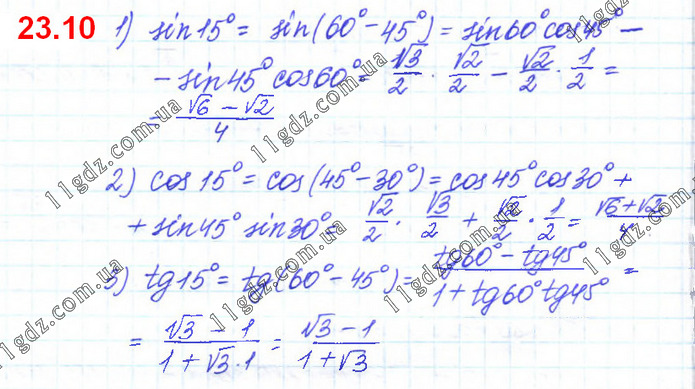 23.10 1) sin15° = sin(60° − 45°) = sin60°cos45° −
− sin45°cos60° = √3/2 · √2/2 − √2/2 · 1/2 =
= (√6 − √2)/4
2) cos15° = cos(45° − 30°) = cos45°cos30° +
+ sin45° sin30° = √2/2 · √3/2 + √2/2 · 1/2 = (√6 + √2)/4
3) tg15° = tg(60° − 45°) = (tg60° − tg45°)/(1 + tg60°tg45°) =
= (√3 − 1)/(1 + √3·1) = (√3 − 1)/(1 + √3)
11gdz.com.ua
11gdz.com.ua
11gdz.com.ua
11gdz.com.ua
11gdz.com.ua
11gdz.com.ua